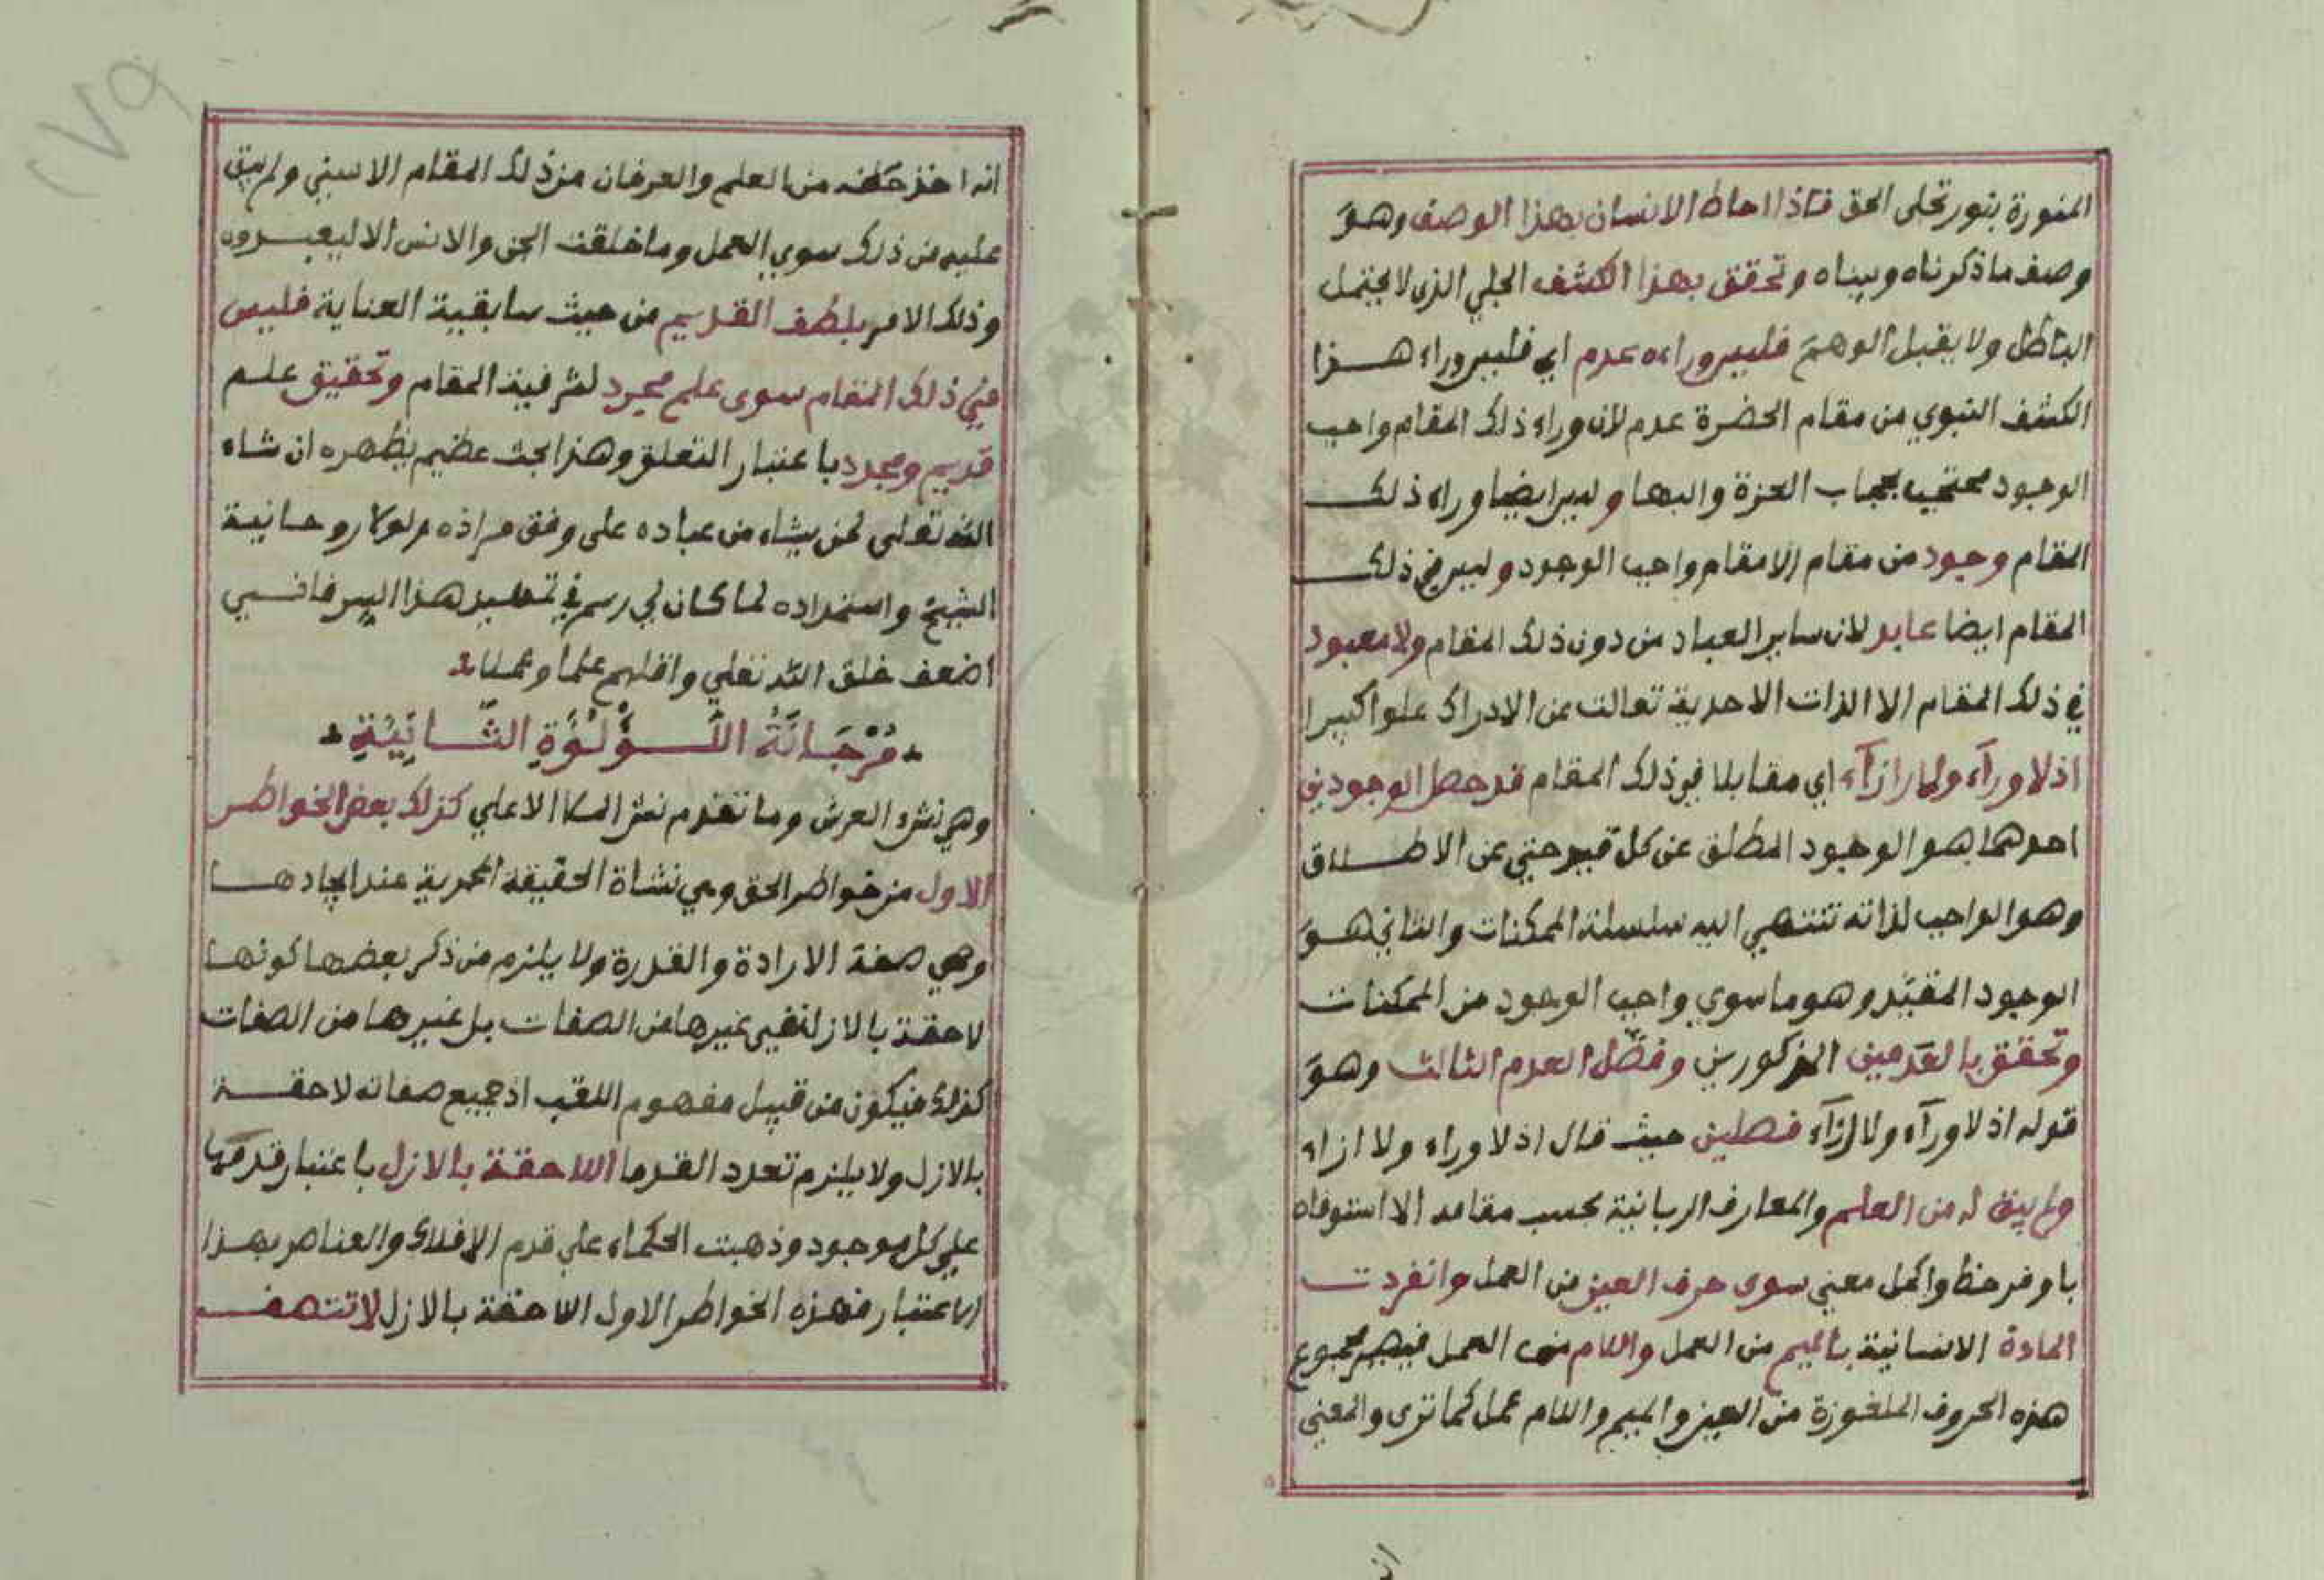 المنورة بنور تجلى الحق فاذا احاط الانسان بهذا الوصف وهو
وصف ما ذكرناه وبيناه وتحقق بهذا الكشف الجلي الذى لا يحتمل
الباطل ولا يقبل الوهم فليس وراءه عدم اي فليس وراء هذا
الكشف النبوي من مقام الحضرة عدم لان وراء ذلك المقام واجب
الوجود محتجب بحجاب العزة والبها وليس ايضا وراء ذلك
المقام وجود من مقام الا مقام واجب الوجود وليس في ذلك
المقام ايضا عابد لان ساير العباد من دون ذلك المقام ولا معبود
في ذلك المقام الا الذات الاحدية تعالت عن الادراك علوا كبيرا
اذ لا ورآء ولا ازآء اي مقابلا في ذلك المقام قد حصل الوجودين
احدهما هو الوجود المطلق عن كل قيد حتي عن الاطلاق
وهو الواجب لذاته تنتهي اليه سلسلة الممكنات والثاني هو
الوجود المقيد وهو ما سوي واجب الوجود من الممكنات
وتحقق بالعدمين المذكورين وفصل العدم الثالث وهو
قوله اذ لا ورآء ولا ازآء فصلين حيث قال اذ لا وراء ولا ازاء
ولم يبق له من العلم والمعارف الربانية بحسب مقامه الا استوفاه
باوفر حظ واكمل معني سوى حرف العين من العمل وانفردت
المادة الانسانية بالميم من العمل واللام من العمل فيصير مجموع
هذه الحروف الملغوزة من العين والميم واللام عمل كما ترى والمعنى
ان
٢٧٩
انه اخذ حظه من العلم والعرفان من ذلك المقام الاسني ولم يبق
عليه من ذلك سوي العمل وما خلقت الجن والانس الا ليعبدون
وذلك الامر بلطف القديم من حيث سابقية العناية فليس
في ذلك المقام سوى علم مجرد لشرفية المقام وتحقيق علم
قديم ومجرد باعتبار التعلق وهذا بحث عظيم يظهره ان شاء
الله تعالى لمن يشاء من عباده على وفق مراده ولولا روحانية
الشيخ واستمداده لما كان لي رسم في هذا السر فانني
اضعف خلق الله تعلي واقلهم علما وعملا
مُرْجَانَةُ اللُّؤْلُؤَةِ الثَّانِيَةِ
وهي نشء العرش وما تقدم نشء الملا الاعلي كذلك بعض الخواطر
الاول من خواطر الحق وهي نشاة الحقيقة المحمدية عند ايجادها
وهي صفة الارادة والقدرة ولا يلزم من ذكر بعضها كونها
لاحقة بالازل نفي غيرها من الصفات بل غيرها من الصفات
كذلك فيكون من قبيل مفهوم اللقب اذ جميع صفاته لاحقة
بالازل ولا يلزم تعدد القدما اللاحقة بالازل باعتبار قدمها
علي كل موجود وذهبت الحكماء علي قدم الافلاك والعناصر بهذا
الاعتبار فهذه الخواطر الاول اللاحقة بالازل لا تتصف